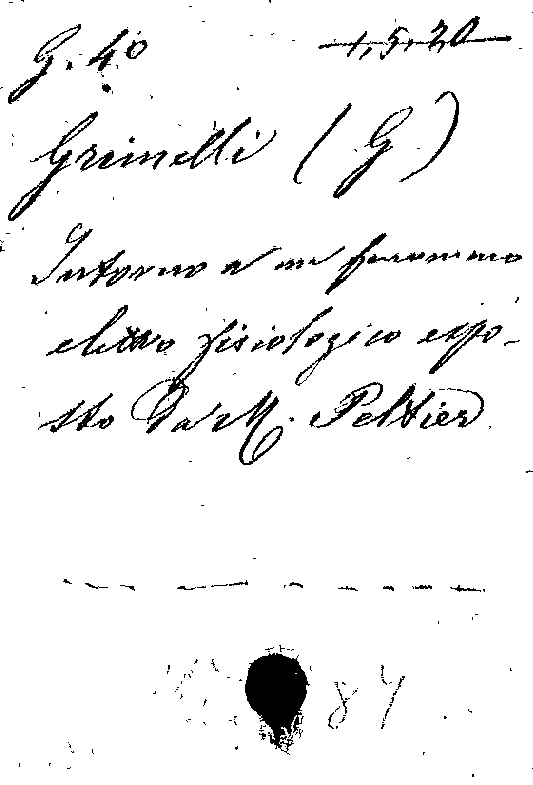 G. 40 1, 5, 20
Grinelli (G)
Intorno a un fenomeno
elettro fisiologico espo-
sto da M. Peltier
84